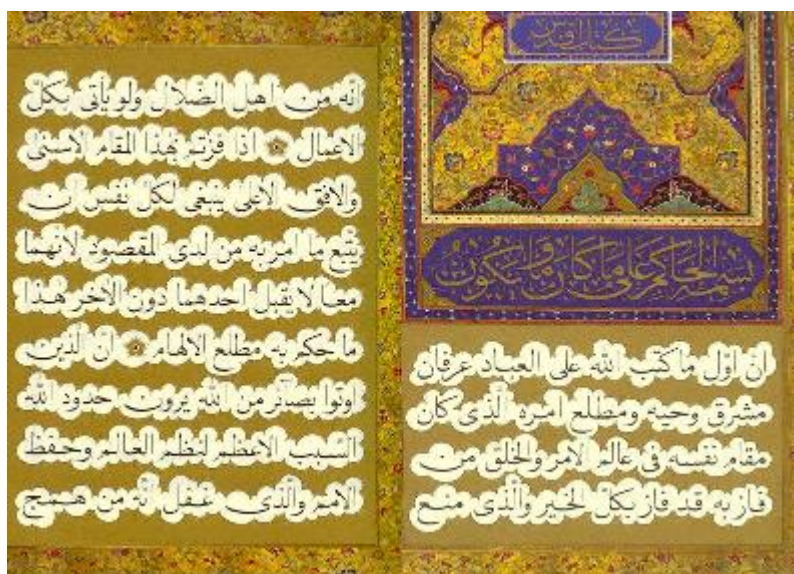 كتاب اقدس
بسمه الحاكم على ما كان وما يكون
ان اوّل ما كتب الله على العباد عرفان
مشرق وحيه ومطلع امره الّذى كان
مقام نفسه فى عالم الامر والخلق من
فاز به قد فاز بكلّ الخير والّذى منع
انّه من اهل الضّلال ولو يأتى بكلّ
الاعمال اذا فزتم بهذا المقام الاسنى
والافق الاعلى ينبغى لكلّ نفس ان
يتّبع ما امر به من لدى المقصود لانّهما
معاً لا يقبل احدهما دون الآخر هذا
ما حكم به مطلع الالهام انّ الّذين
اوتوا بصآئر من الله يرون حدود الله
السّبب الاعظم لنظم العالم وحفظ
الامم والّذى غفل انّه من همج